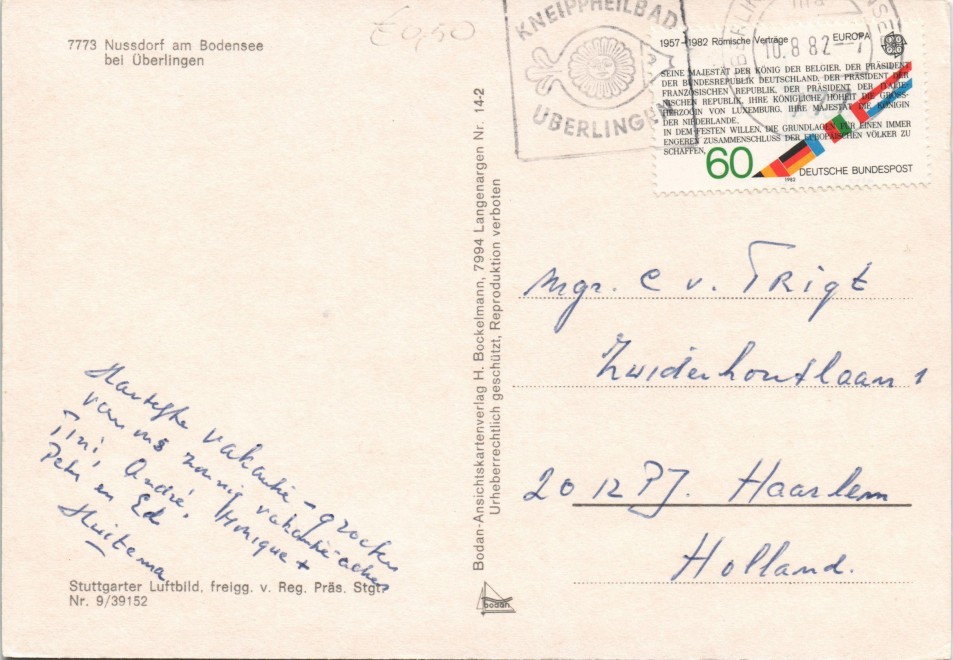 7773 Nussdorf am Bodensee
bei Überlingen
€0,50
KNEIPPHEILBAD
ÜBERLINGEN
10.8.82
1957–1982 Römische Verträge
EUROPA
SEINE MAJESTÄT DER KÖNIG DER BELGIER, DER PRÄSIDENT
DER BUNDESREPUBLIK DEUTSCHLAND, DER PRÄSIDENT DER
FRANZÖSISCHEN REPUBLIK, DER PRÄSIDENT DER ITALIE-
NISCHEN REPUBLIK, IHRE KÖNIGLICHE HOHEIT DIE GROSS-
HERZOGIN VON LUXEMBURG, IHRE MAJESTÄT DIE KÖNIGIN
DER NIEDERLANDE,
IN DEM FESTEN WILLEN, DIE GRUNDLAGEN FÜR EINEN IMMER
ENGEREN ZUSAMMENSCHLUSS DER EUROPÄISCHEN VÖLKER ZU
SCHAFFEN,
60
1982
DEUTSCHE BUNDESPOST
Bodan-Ansichtskartenverlag H. Bockelmann, 7994 Langenargen Nr. 14-2
Urheberrechtlich geschützt, Reproduktion verboten
Mgr. C v. Trigt
Zuiderhoutlaan 1
2012 PJ. Haarlem
Holland.
Hartelijke vakantie-groeten
van ons zonnig vakantie-adres
Tini, André, Monique +
Petra en Ed
Huitema
Stuttgarter Luftbild, freigg. v. Reg. Präs. Stgt.
Nr. 9/39152
bodan